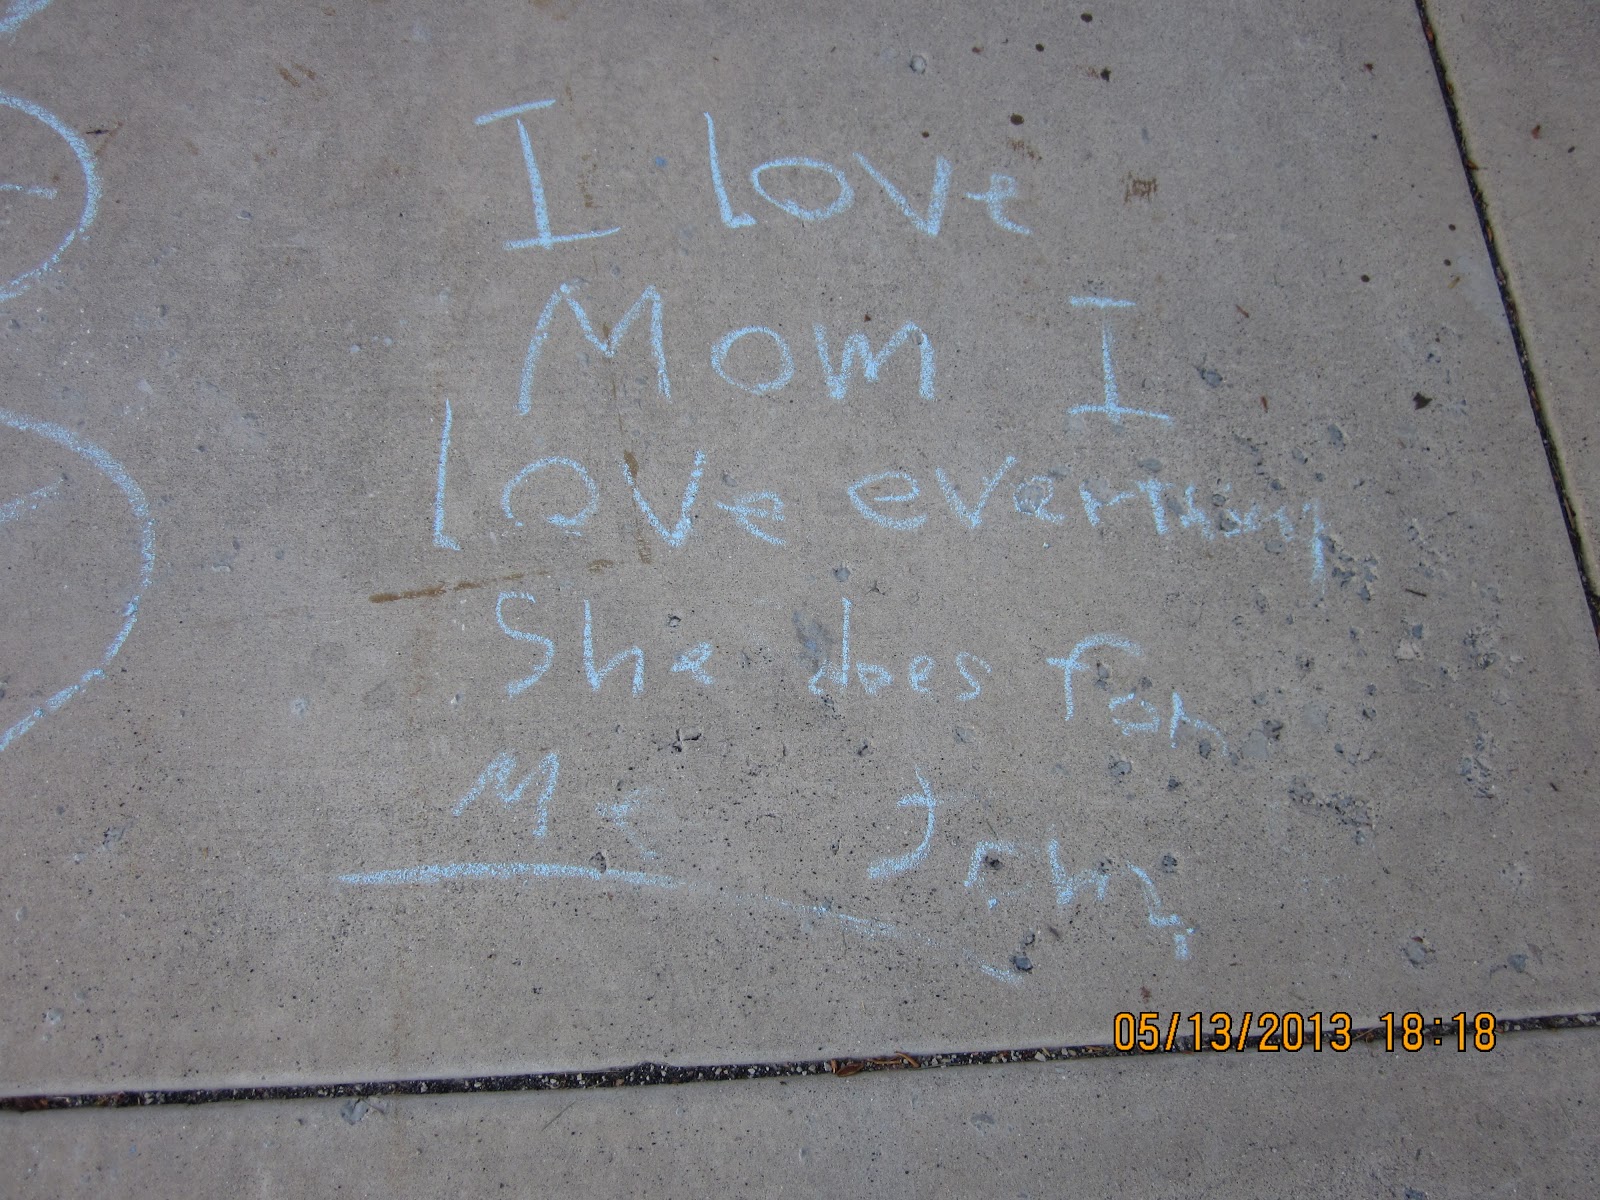 I Love
Mom I
Love everything
She does for
Me
05/13/2013 18:18